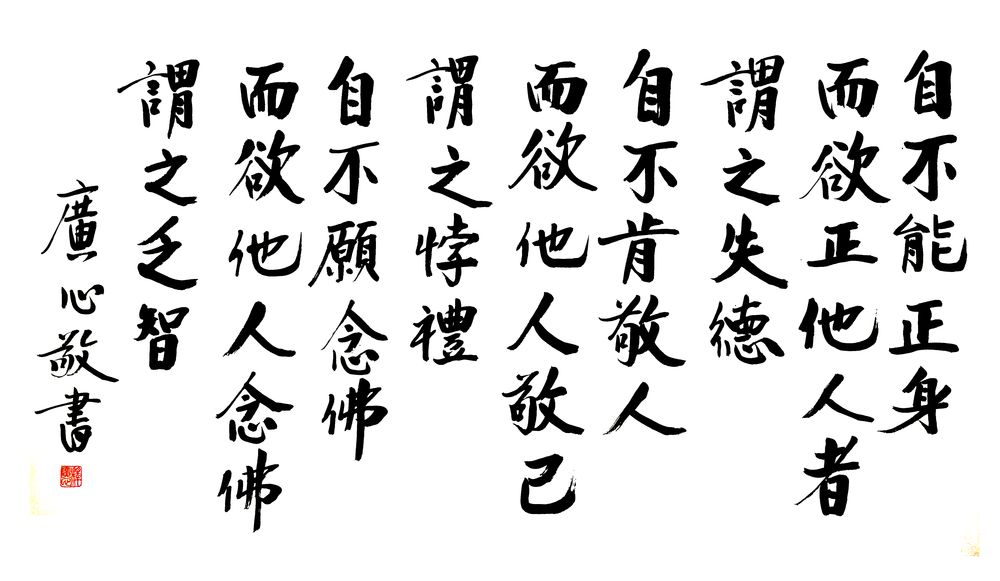 自不能正身
而欲正他人者
謂之失德
自不肯敬人
而欲他人敬己
謂之悖禮
自不願念佛
而欲他人念佛
謂之乏智
廣心敬書